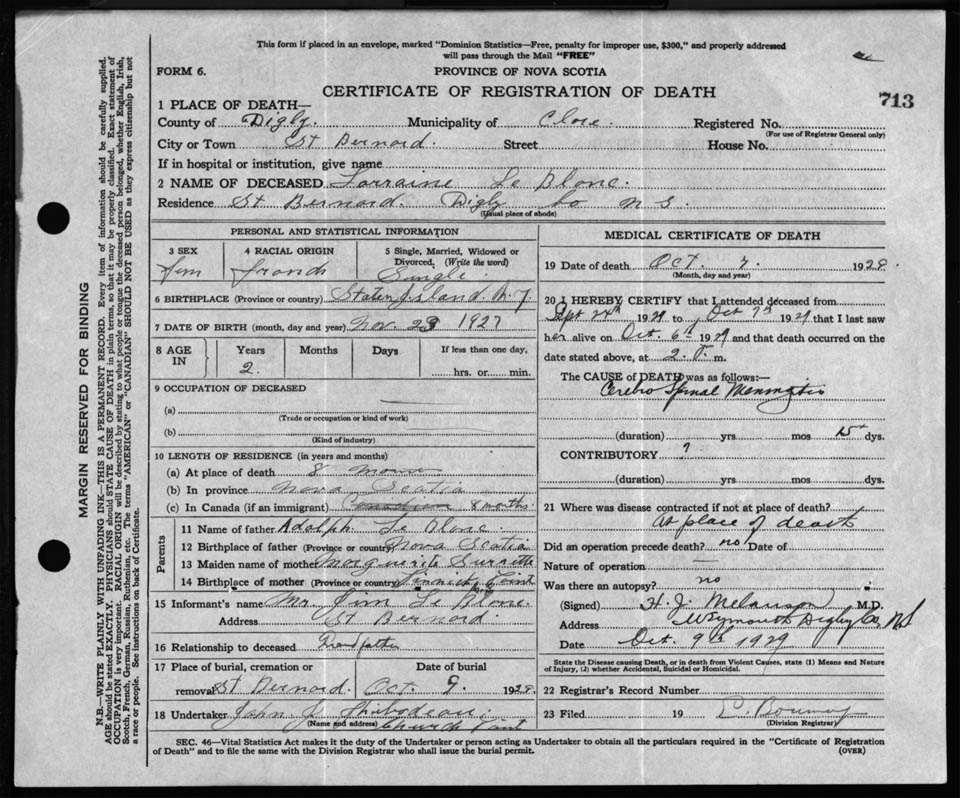 This form if placed in an envelope, marked "Dominion Statistics—Free, penalty for improper use, $300," and properly addressed
will pass through the Mail "FREE"
FORM 6. PROVINCE OF NOVA SCOTIA
CERTIFICATE OF REGISTRATION OF DEATH
713
1 PLACE OF DEATH—
County of Digby. Municipality of Clare. Registered No.
(For use of Registrar General only)
City or Town St Bernard. Street House No.
If in hospital or institution, give name
2 NAME OF DECEASED Lorraine Le Blanc.
Residence St Bernard. Digby Co N S.
(Usual place of abode)
PERSONAL AND STATISTICAL INFORMATION
3 SEX 4 RACIAL ORIGIN 5 Single, Married, Widowed or
Divorced, (Write the word)
Fem french Single.
6 BIRTHPLACE (Province or country) Staten Island. N.Y
7 DATE OF BIRTH (month, day and year) Nov. 23 1927
8 AGE IN Years Months Days If less than one day,
2. hrs. or min.
9 OCCUPATION OF DECEASED
(a)
(Trade or occupation or kind of work)
(b)
(Kind of industry)
10 LENGTH OF RESIDENCE (in years and months)
(a) At place of death 8
(b) In province Nova Scotia
(c) In Canada (if an immigrant) 8 months.
Parents
11 Name of father Adolph Le Blanc.
12 Birthplace of father (Province or country) Nova Scotia
13 Maiden name of mother Marguerite
14 Birthplace of mother (Province or country)
15 Informant's name Mr Jim Le Blanc.
Address St Bernard.
16 Relationship to deceased Grandfather
17 Place of burial, cremation or Date of burial
removal St Bernard. Oct. 9. 1929.
18 Undertaker John J. Thibodeau.
(Name and address) Church Point
MEDICAL CERTIFICATE OF DEATH
19 Date of death Oct. 7. 1929.
(Month, day and year)
20 I HEREBY CERTIFY that I attended deceased from
Sept 24th 1929 to Oct 7th 1929 that I last saw
her alive on Oct 6th 1929 and that death occurred on the
date stated above, at 2. P. m.
The CAUSE of DEATH was as follows:—
Cerebro Spinal Meningitis
(duration) yrs mos 15 dys.
CONTRIBUTORY ?
(duration) yrs. mos. dys.
21 Where was disease contracted if not at place of death?
At place of death
Did an operation precede death? no Date of
Nature of operation —
Was there an autopsy? no
(Signed) H. J. Melanson M.D.
Address Weymouth Digby Co, NS
Date Oct. 9th 1929
State the Disease causing Death, or in death from Violent Causes, state (1) Means and Nature
of Injury, (2) whether Accidental, Suicidal or Homicidal.
22 Registrar's Record Number
23 Filed 19
(Division Registrar)
SEC. 46—Vital Statistics Act makes it the duty of the Undertaker or person acting as Undertaker to obtain all the particulars required in the "Certificate of Registration
of Death" and to file the same with the Division Registrar who shall issue the burial permit. (OVER)
MARGIN RESERVED FOR BINDING
N.B.—WRITE PLAINLY WITH UNFADING INK—THIS IS A PERMANENT RECORD. Every item of information should be carefully supplied.
AGE should be stated EXACTLY. PHYSICIANS should STATE CAUSE OF DEATH in plain terms, so that it may be properly classified. Exact statement of
OCCUPATION is very important. RACIAL ORIGIN will be described by stating to what people or tongue the deceased person belonged, whether English, Irish,
Scotch, French, German, Russian, Ruthenian, etc. The terms "AMERICAN" or "CANADIAN" SHOULD NOT BE USED as they express citizenship but not
a race or people. See instructions on back of Certificate.